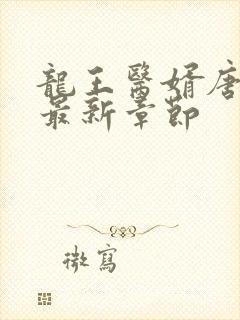 龍王醫婿唐
最新章節
微寫